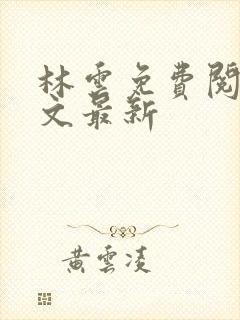 林雲免費閱
文最新
黃雲凌